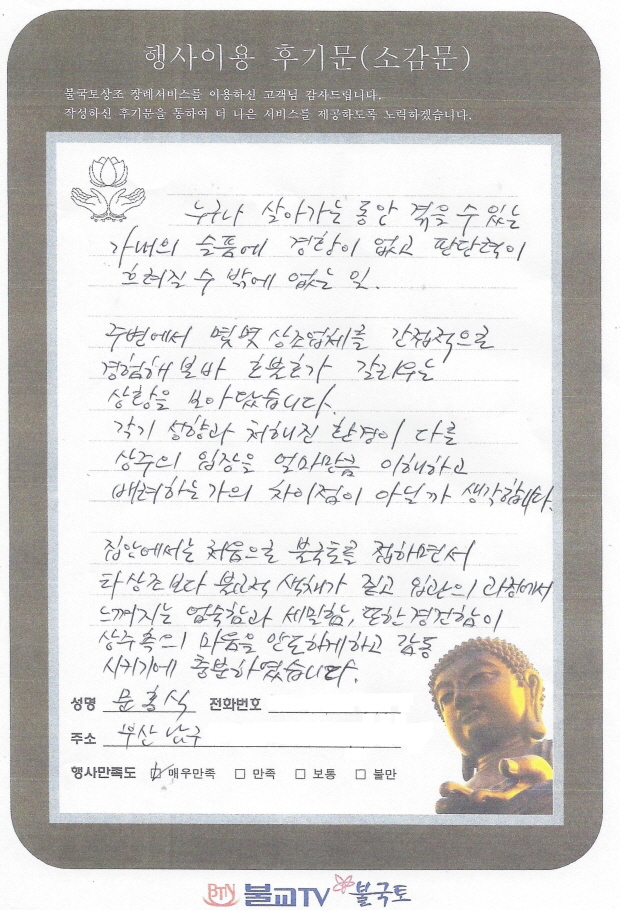 행사이용 후기문(소감문)
불국토상조 장례서비스를 이용하신 고객님 감사드립니다.
작성하신 후기문을 통하여 더 나은 서비스를 제공하도록 노력하겠습니다.
누구나 살아가는 동안 겪을 수 있는
가내의 슬픔에 경황이 없고 판단력이
흐려질 수 밖에 없는 일.
주변에서 몇몇 상조업체를 간접적으로
경험해 본바 호불호가 갈리우는
상황을 보아왔습니다.
각기 성향과 처해진 환경이 다를
상주의 입장을 얼마만큼 이해하고
배려하는가의 차이점이 아닐까 생각합니다.
집안에서는 처음으로 불국토를 접하면서
타상조보다 불교적 색채가 짙고 입관의 과정에서
느껴지는 엄숙함과 세밀함, 또한 경건함이
상주측의 마음을 안도하게하고 감동
시키기에 충분하였습니다.
성명 문홍식 전화번호
주소 부산 남구
행사만족도 ☑ 매우만족 □ 만족 □ 보통 □ 불만
BTN 불교TV 불국토